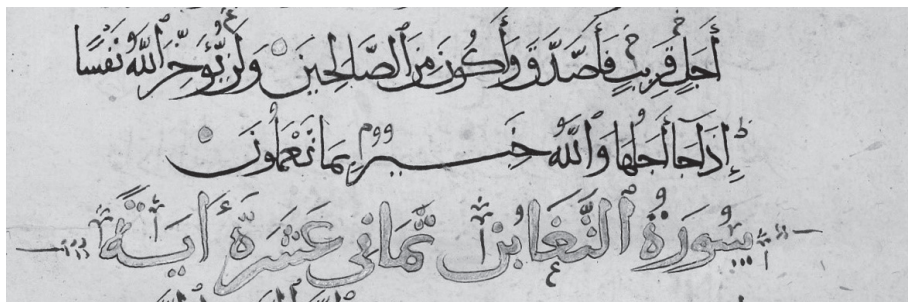 أَجَلٍ قَرِيبٍ فَأَصَّدَّقَ وَأَكُونَ مِنَ ٱلصَّالِحِينَ وَلَن يُّؤَخِّرَ ٱللَّهُ نَفْسًا
إِذَا جَا أَجَلُهَا وَٱللَّهُ خَبِيرٌ بِمَا تَعْمَلُونَ
سُورَةُ ٱلتَّغَابُنِ ثَمَانِي عَشْرَةَ ءَايَةً